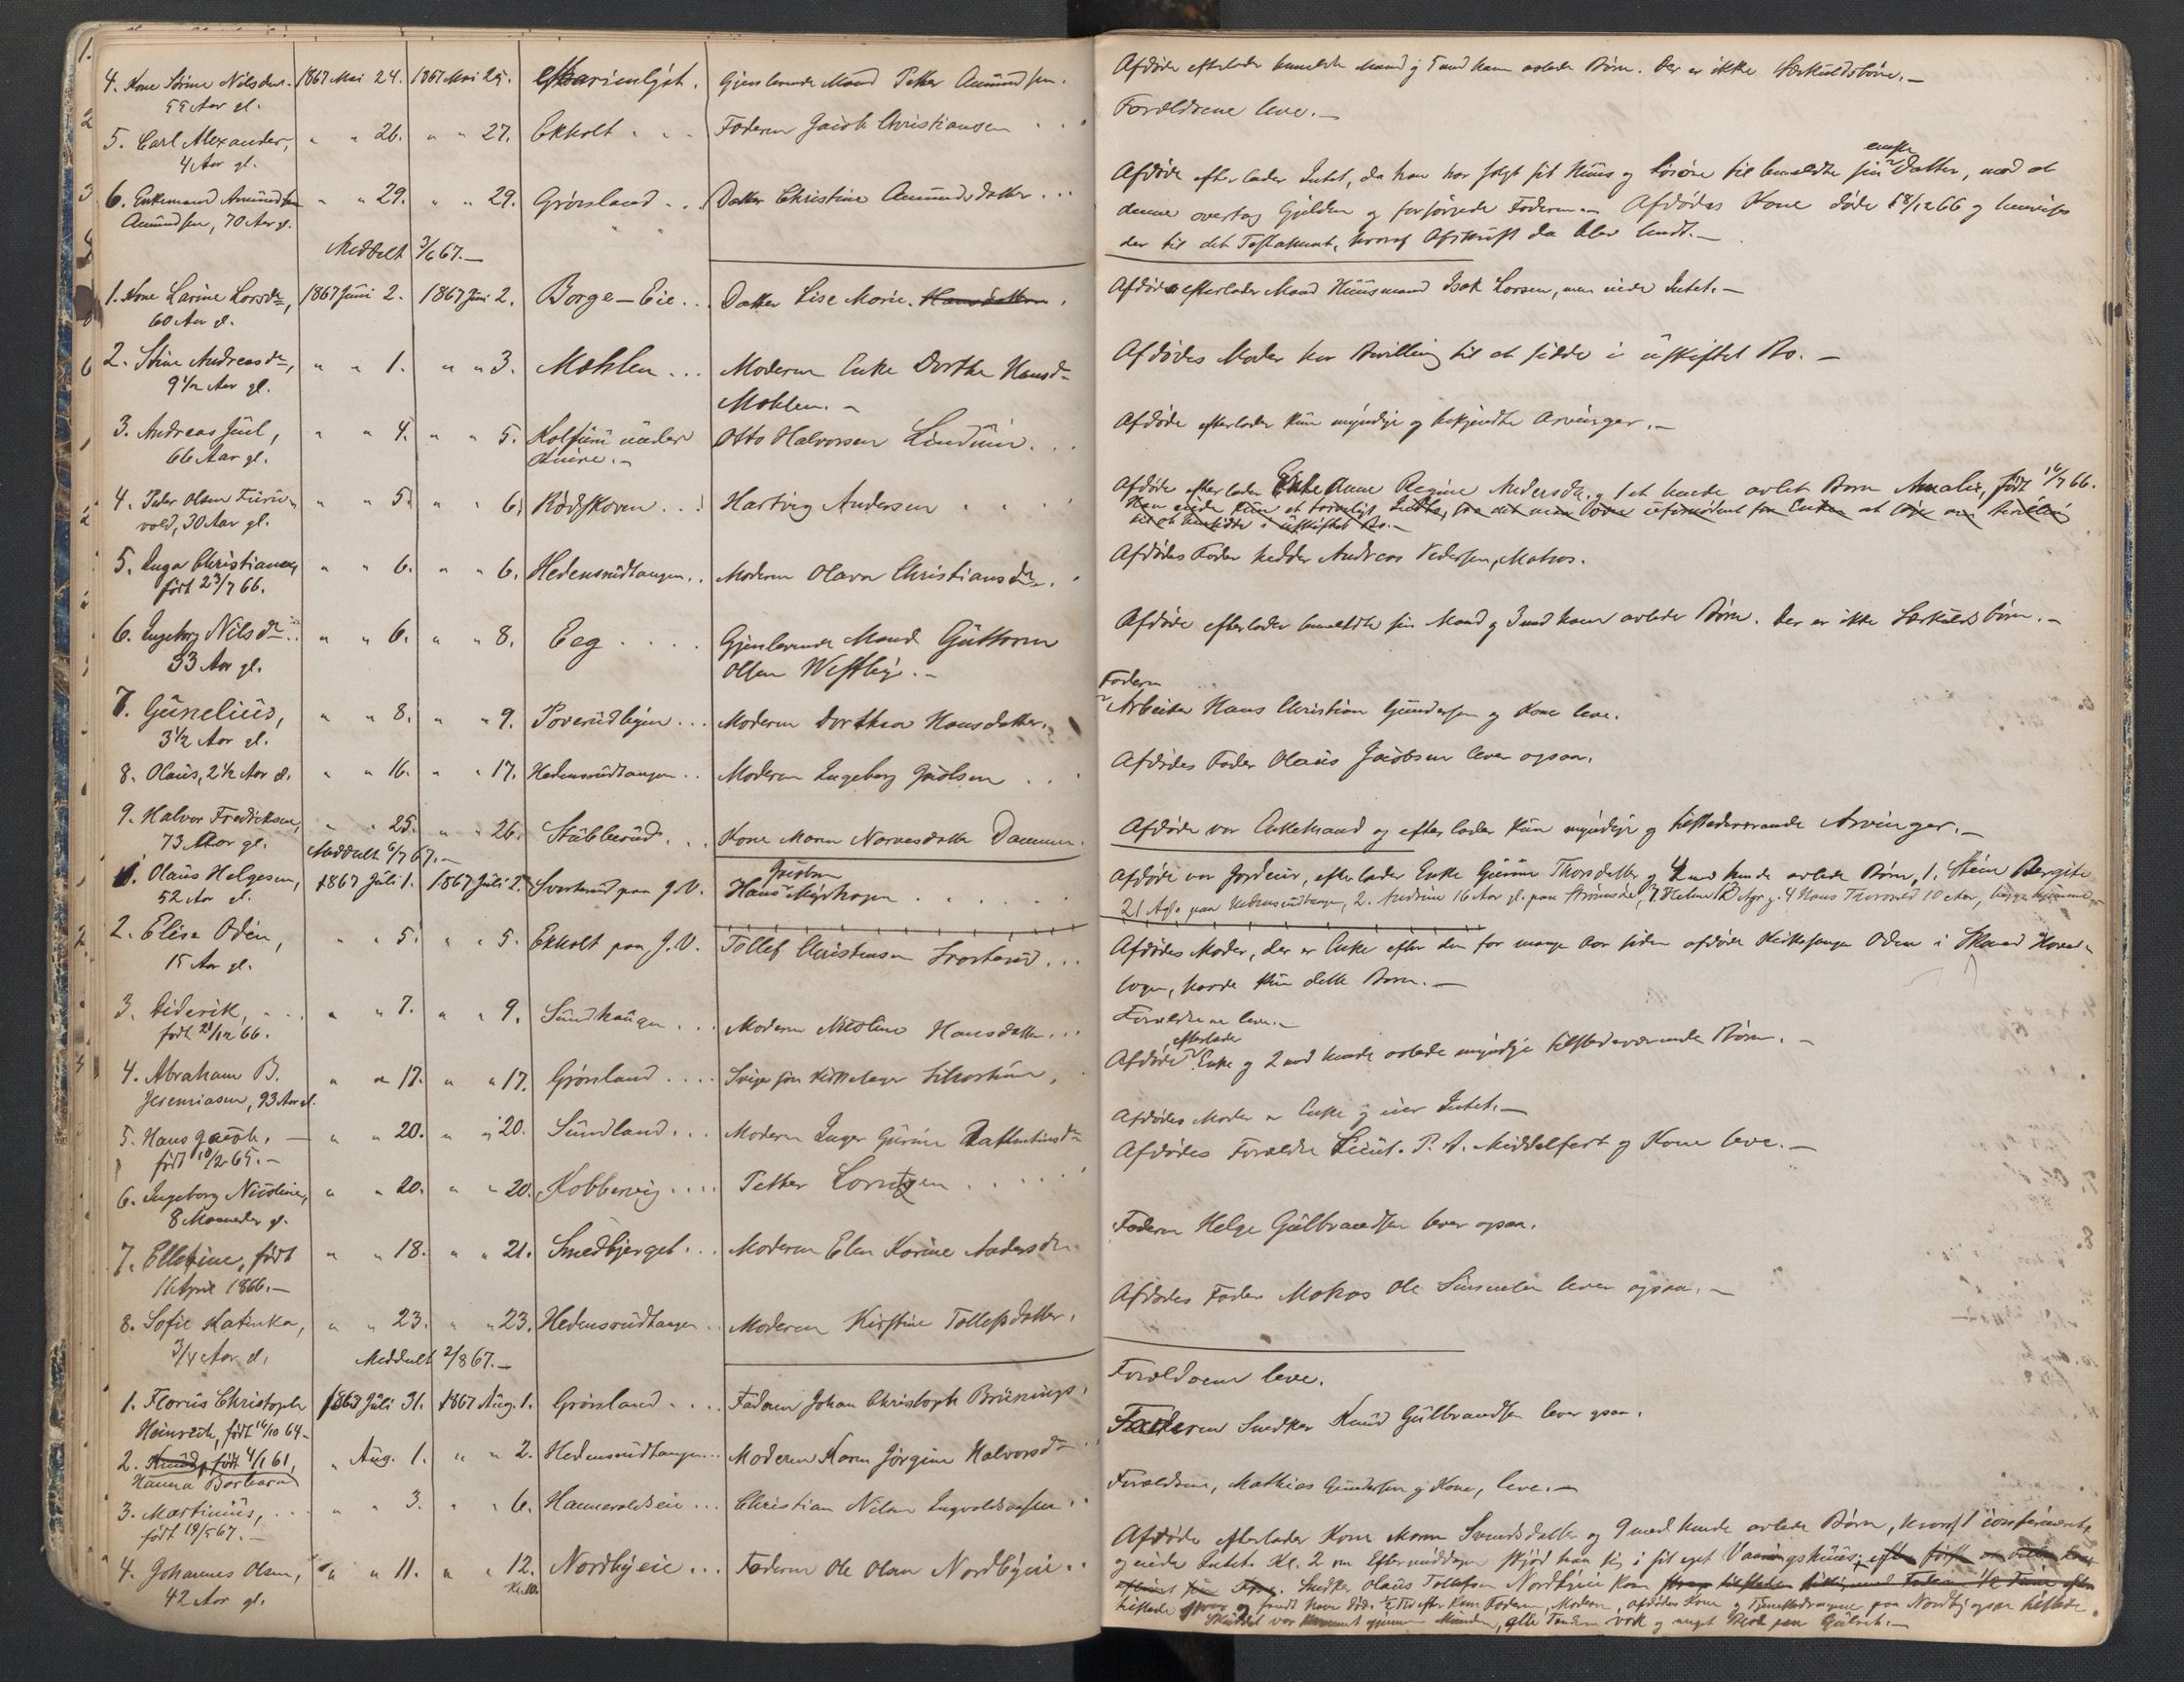 4. Kone Sirine Nilsdtr. 1867 Mai 24. 1867 Mai 25. Gjenlevende Mand Petter Amundsen.
55 Aar gl.
5. Carl Alexander, " " 26. " " 27. Ekholt . . . Faderen Jacob Christiansen . . .
4 Aar gl.
6. Enkemand Amund " " 29. " " 29. Grønland . . Datter Christine Amundsdatter . . .
Amundsen, 70 Aar gl.
Meddelt 3/6 67.—
1. Kone Larine Larsdr, 1867 Juni 2. 1867 Juni 2. Borge-Eie . . Datter Lise Marie Hansdatter.
60 Aar gl.
2. Stine Andreasdr, " " 1. " " 3. Mohlen . . . Moderen Enke Dorthe Hansdr
9 1/2 Aar gl. Mohlen.—
3. Andreas Juul, " " 4. " " 5. under Otto Halvorsen Lindum . . .
66 Aar gl. Knive.—
4. Peder Olsen Furu- " " 5. " " 6. Rødskoven . . . Hartvig Andersen . . . .
vold, 30 Aar gl.
5. Inga Christiane, " " 6. " " 6. Hedensrudtangen . . Moderen Olava Christiansdr.
født 23/7 66.
6. Ingeborg Nilsdr . . " " 6. " " 8. Eeg . . . . Gjenlevende Mand Guttorm
33 Aar gl. Olsen Westby.—
7. Gunelius, " " 8. " " 9. Poverudbyen . . . Moderen Dorthea Hansdatter.
3 1/2 Aar gl.
8. Olaus, 2 1/2 Aar gl. " " 16. " " 17. Hedensrudtangen . . Moderen Ingeborg . . .
9. Halvor Fredriksen, " " 25. " " 26. Stubberud . . . Kone Maren Narvesdatter Dammen.
73 Aar gl. Meddelt 6/7 67.—
1. Olaus Helgesen, 1867 Juli 1. 1867 Juli 2. Svarterud paa J.V. Hans Myrhagen . . . . . .
52 Aar gl.
2. Elise Oden, " " 5. " " 5. Ekholt paa J.V. Tollef Christensen Svarterud . . .
15 Aar gl.
3. Diderik, . . . " " 7. " " 9. Sundhaugen . . . Moderen Nicoline Hansdatter . . .
født 28/12 66.
4. Abraham B. " " 17. " " 17. Grønland . . . . Svigersøn
Jeremiasen, 93 Aar gl.
5. Hans Jacob, — " " 20. " " 20. Sundland . . . Moderen Inger Gurine
født 10/2 65.—
6. Ingeborg Nicoline, " " 20. " " 20. Kobbervig . . . . Petter Lorntzen . . . . .
8 Maaneder gl.
7. Ellefine, født " " 18. " " 21. Smedbjerget . . . Moderen Elen Karine Andersdr.
16 April 1866.—
8. Sofie Katinka, " " 23. " " 23. Hedensrudtangen . . Moderen Kirstine Tollefsdatter.
3/4 Aar gl. Meddelt 2/8 67.—
1. Florus Christoph 1867 Juli 31. 1867 Aug. 1. Grønland . . . . Faderen Johan Christoph Brünings.
Heinrich, født 16/10 64.—
2. Knud, født 4/1 61, " Aug. 1. " " 2. Hedensrudtangen . . . Moderen Karen Jørgine Halvorsdr
Hanna Barbara
3. Martinius, . . . " " 3. " " 6. Hameraldseie . . . Christian Nilsen
født 19/5 67.—
4. Johannes Olsen, " " 11. " " 12. Nordbyeie . . . Faderen Ole Olsen Nordbyeie . .
42 Aar gl. Kl. 10.
Afdøde efterlader bemeldte Mand og 7 med ham avlede Børn. Der er ikke Særkuldsbørn.—
Forældrene leve.—
eneste
Afdøde efterlader Intet, da han har solgt sit Huus og Løsøre til bemeldte sin Datter, mod at
denne overtog Gjælden og forsørgede Faderen.— Afdødes Kone døde 18/12 66 og henvises
der til det Testament, hvoraf Afskrift da blev sendt.—
Afdøde efterlader Mand Huusmand Isak Larsen, men eiede Intet.—
Afdødes Moder har Bevilling til at sidde i uskiftet Bo.—
Afdøde efterlader kun myndige og bekjendte Arvinger.—
Afdøde efterlader Enke Anne Regine Andersdr. og 1 et hende avlet Barn Amalie, født 16/7 66.
Afdødes Fader hedder Andreas Pedersen, Matros.
Afdøde efterlader bemeldte sin Mand og 3 med ham avlede Børn. Der er ikke Særkuldsbørn.—
Faderen
Arbeider Hans Christian Gundersen og Kone leve.
Afdødes Fader Olaus Jacobsen lever ogsaa.
Afdøde var Enkemand og efterlader kun myndige og tilstedeværende Arvinger.—
Afdøde var Gardeier, efterlader Enke Gurine Thorsdatter og 4 med hende avlede Børn, 1. Stine Bergite
21 Aar paa Hedensrudtangen, 2. Andrine 16 Aar gl. paa Strømsø, 4 Hans Thorvald 10 Aar, begge hjemme.
Afdødes Moder, der er Enke efter den for mange Aar siden afdøde Kirkesanger Oden i
havde kun dette Barn.—
Forældrene leve.—
efterlader
Afdøde Enke og 2 med hende avlede myndige tilstedeværende Børn.—
Afdødes Moder er Enke og eier Intet.—
Afdødes Forældre Lieut. P. A. Middelfart og Kone leve.—
Faderen Helge Gulbrandsen lever ogsaa.
Afdødes Fader Matros Ole Simensen lever ogsaa.—
Forældrene leve.
Faderen Snedker Knud Gulbrandsen lever ogsaa.
Forældrene, Mathias Gundersen og Kone, leve.—
Afdøde efterlader Kone Maren Svendsdatter og 9 med hende avlede Børn, hvoraf 1 confirmeret,
og eiede Intet. Kl. 2 om Eftermiddagen skjød han sig i sit eget Vaaningshuus;
Snedker Olaus Tollefsen Nordbyeie kom
tilstede og fandt ham død. 1/2 Time efter kom Faderen, Moderen, afdødes Kone og Tjenestedrengen paa Nordby ogsaa tilstede.
Skuddet var kommet gjennem Munden, alle Tænderne væk og meget Blod paa Gulvet.—